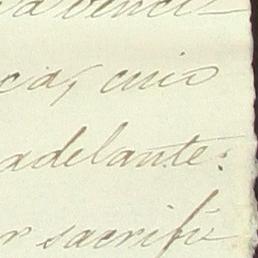 a venci-
ca, cuio
adelante:
r sacrifi